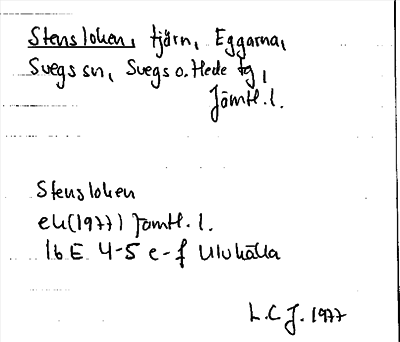 Stensloken, tjärn, Eggarna,
Svegs sn, Svegs o. Hede tg,
Jämtl. l.
Stensloken
ek (1977) Jämtl. l.
16 E 4-5 e-f Ulvkälla
L. C J. 1977